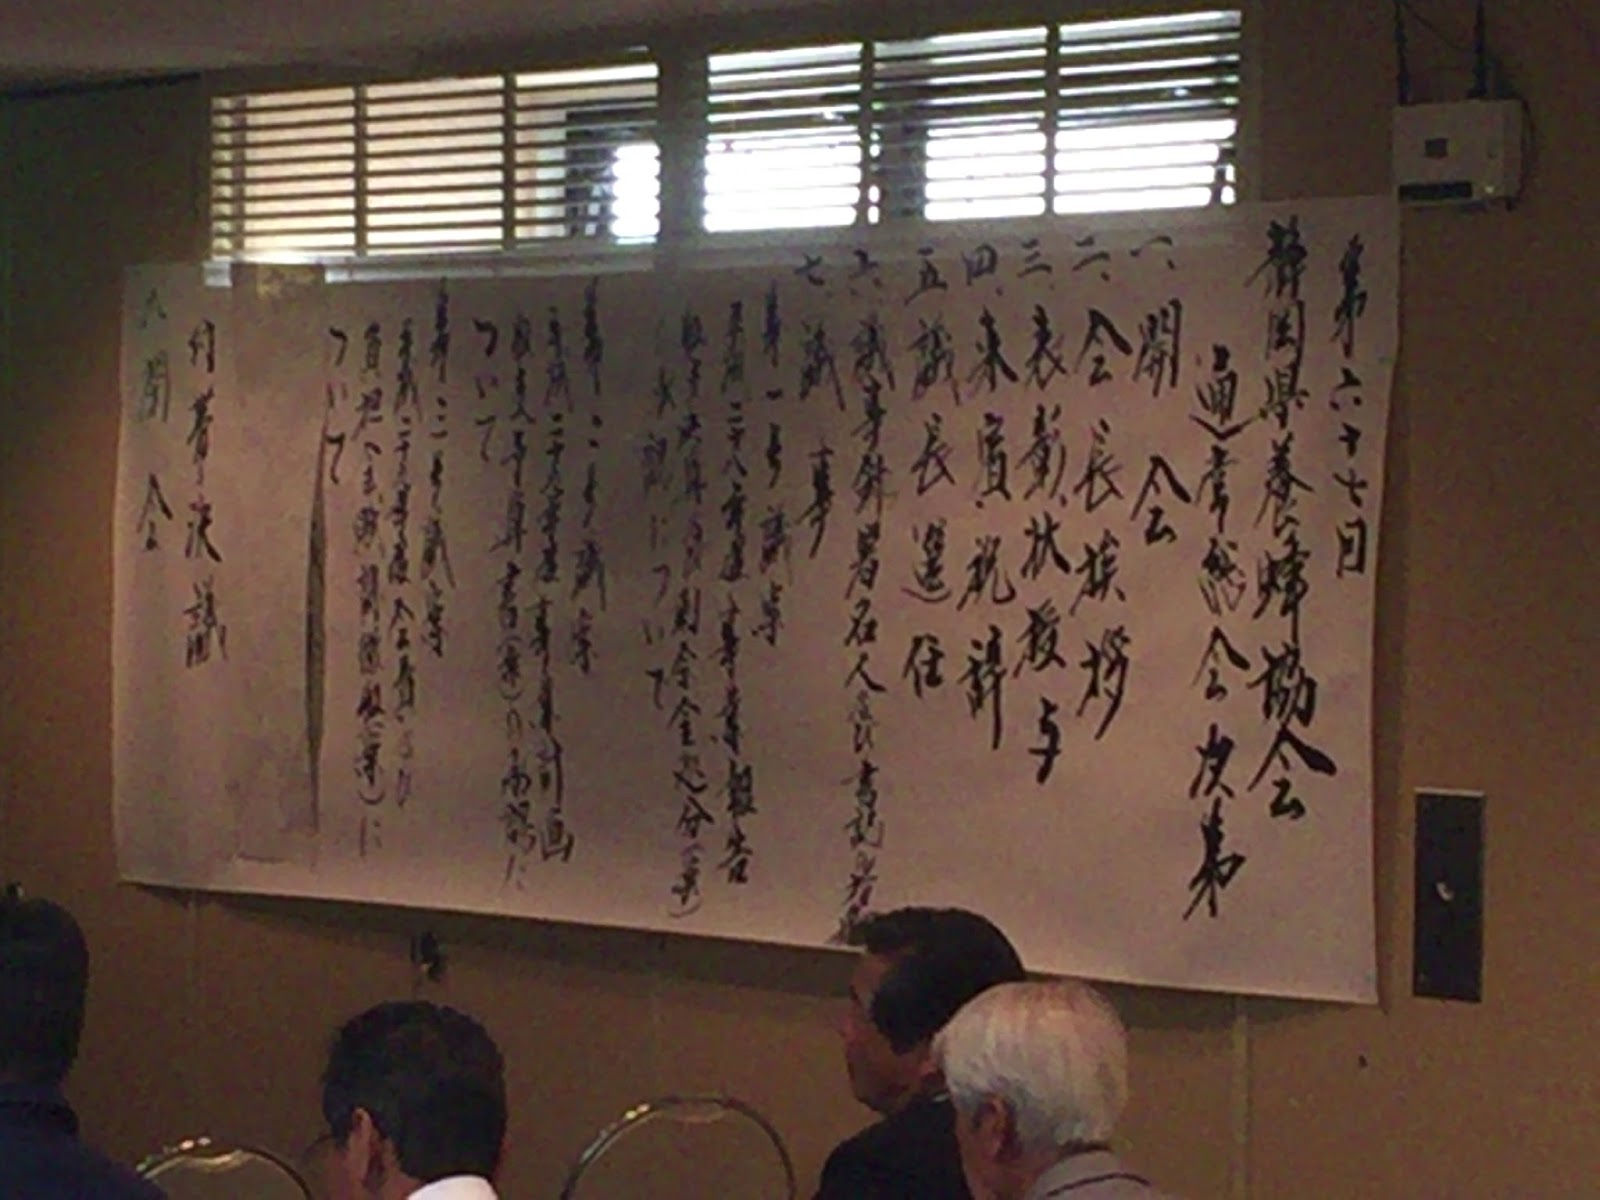 第六十七回
静岡県養蜂協会
通常総会次第
一、開会
二、会長挨拶
三、表彰状授与
四、来賓祝辞
五、議長選任
六、議事録署名人及び書記
七、議事
第一号議案
平成二十八年度事業報告
収支決算
剰余金処分(案)
承認について
第二号議案
平成二十九年度事業計画
収支予算書(案)の承認に
ついて
第三号議案
平成二十九年度会費
負担
(案)に
ついて
付帯決議
八、閉会